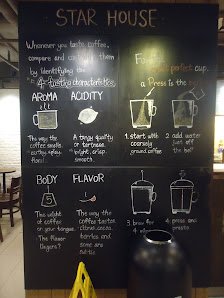 STAR HOUSE
Whenever you taste coffee,
compare and contrast them
by identifying the
4 tasting characteristics
AROMA
The way the
coffee smells.
ACIDITY
A tangy quality
or tartness.
bright, crisp,
smooth.
BODY
The weight of
coffee on
your tongue.
The flavor
lingers?
FLAVOR
The way the
coffee tastes.
citrus, cocoa,
berries and
some are
subtle
perfect cup.
a Press is the
1. start with
coarsely
ground coffee
2. add water
just off
the boil
3. brew for
4
4. press and